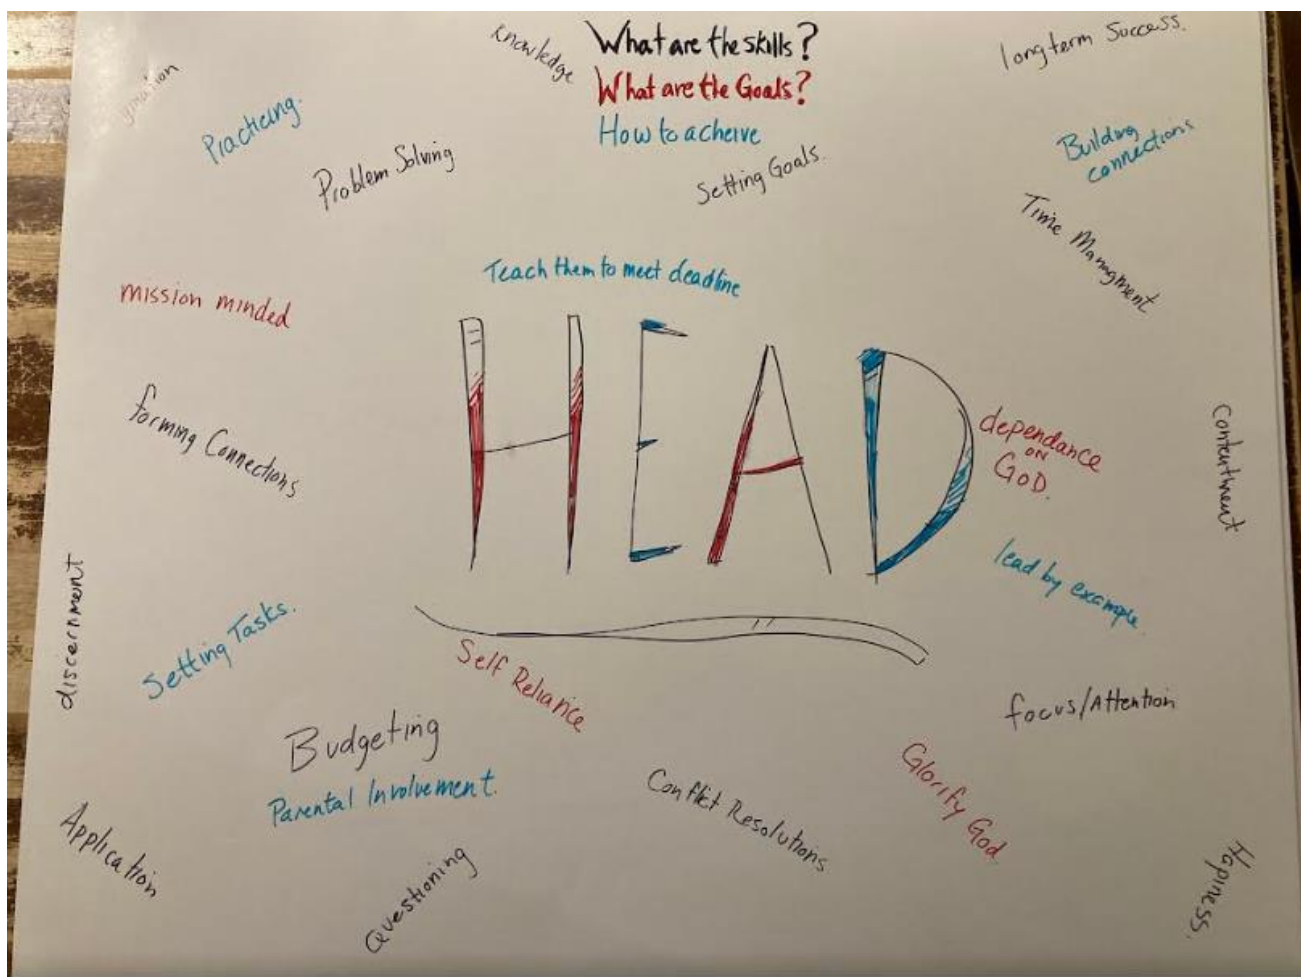 Knowledge
What are the skills?
What are the Goals?
How to acheive
long term Success.
Practicing.
Problem Solving
Setting Goals.
Building
connections
Time Managment
Teach them to meet deadline
mission minded
HEAD
forming Connections
dependance
ON
GOD.
Contentment
lead by example
discernment
Setting Tasks.
Self Reliance
focus/Attention
Budgeting
Parental Involvement.
Conflict Resolutions
Glorify God
Application
Questioning
Hapiness.